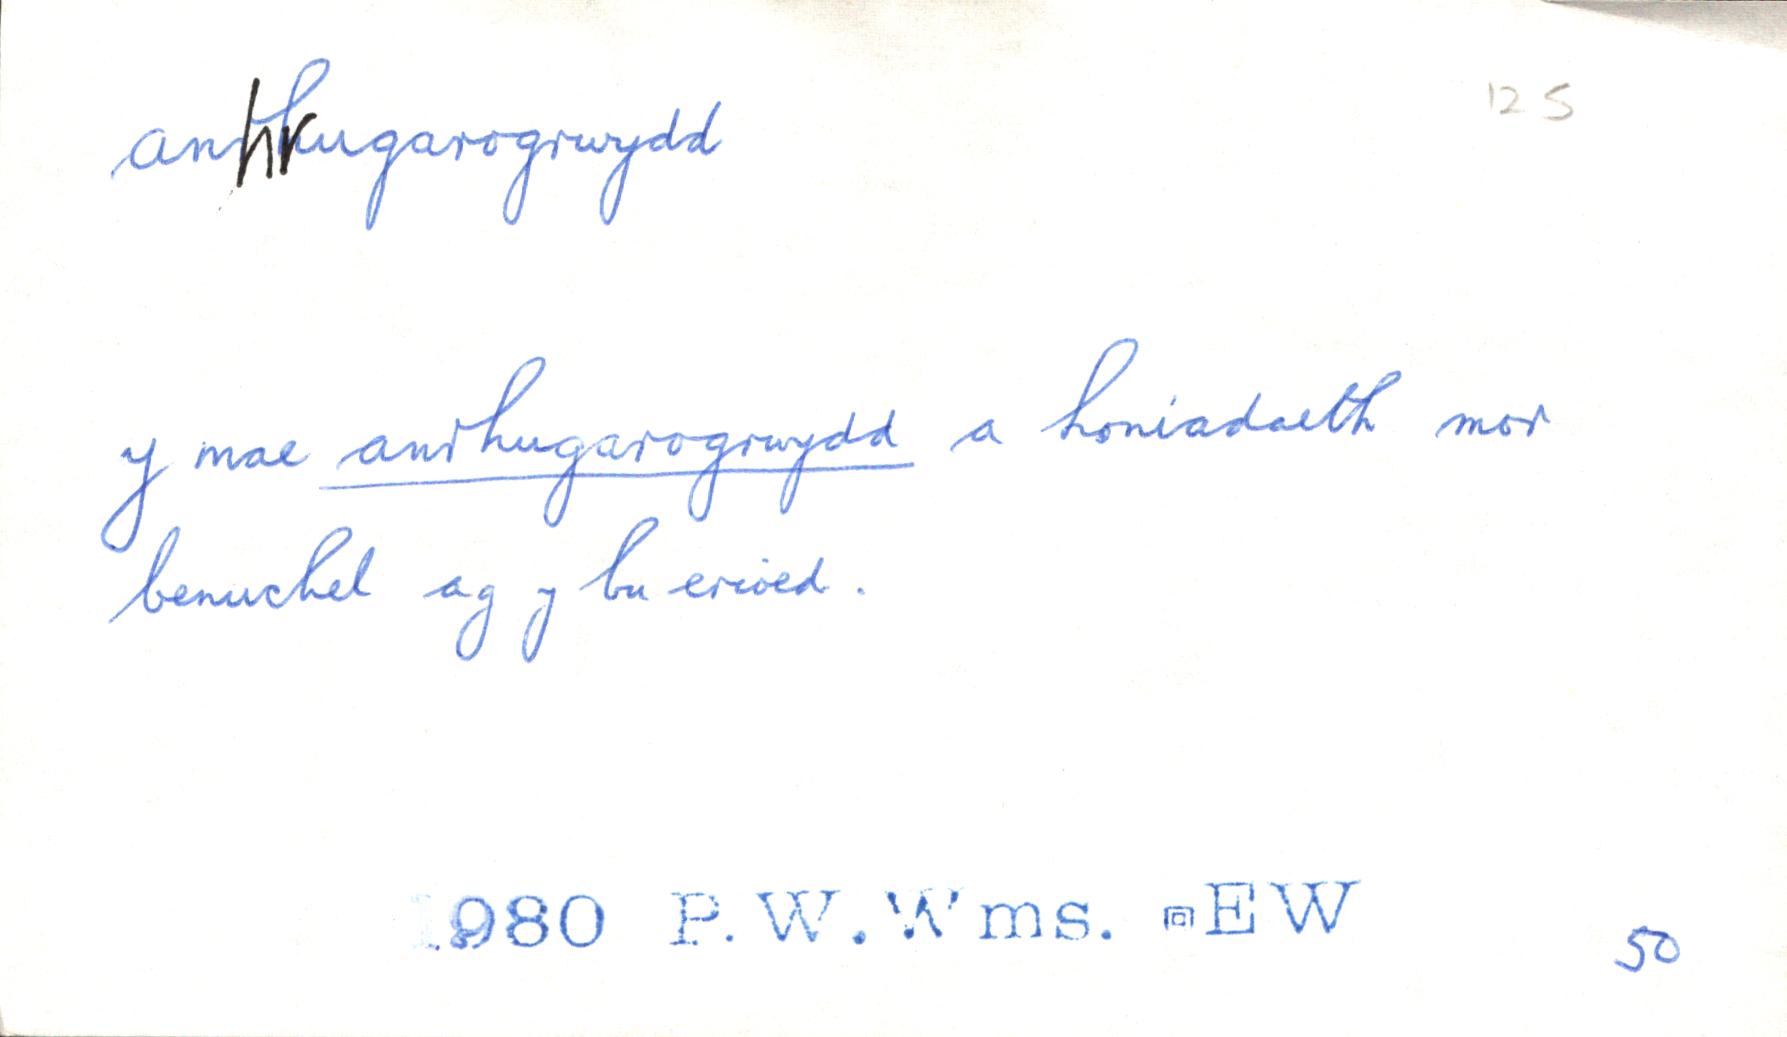 anhrugarogrwydd
125
y mae anrhugarogrwydd a honiadaeth mor
benuchel ag y bu erioed.
1980 P.W.Wms. EW
50